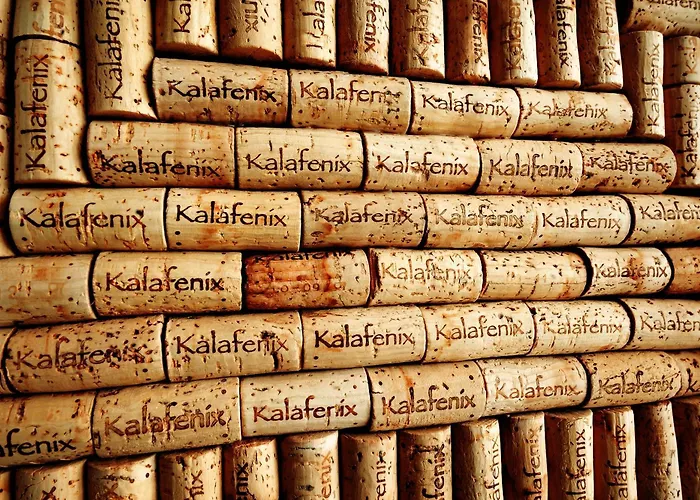 Kalafenix Kalafenix Kalafenix enix Kalafenix Kalafenix Kalafenix Kalafenix Kalafenix
Kalafenix Kalafenix Kalafenix Kalafenix
Kalafenix Kalafenix Kalafenix Kalafenix Kalafenix
Kalafenix Kalafenix Kalafenix Kalafenix Kalafenix Kalafenix
Kalafenix Kalafenix Kalafenix Kalafenix
Kalafenix Kalafenix Kalafenix Kalafenix Kalafenix Kalafenix
afenix Kalafenix Kalafenix Kalafenix Kalafenix Kalafenix
Kalafenix Kalafenix Kalafenix Kalafenix Kalafenix